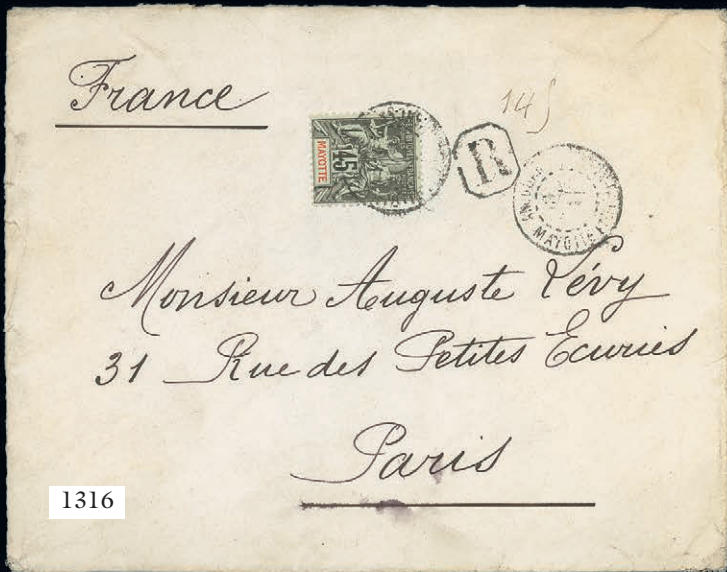 France
145
MAYOTTE
45
R
MAYOTTE
Monsieur Auguste Lévy
31 Rue des Petites Ecuries
Paris
1316